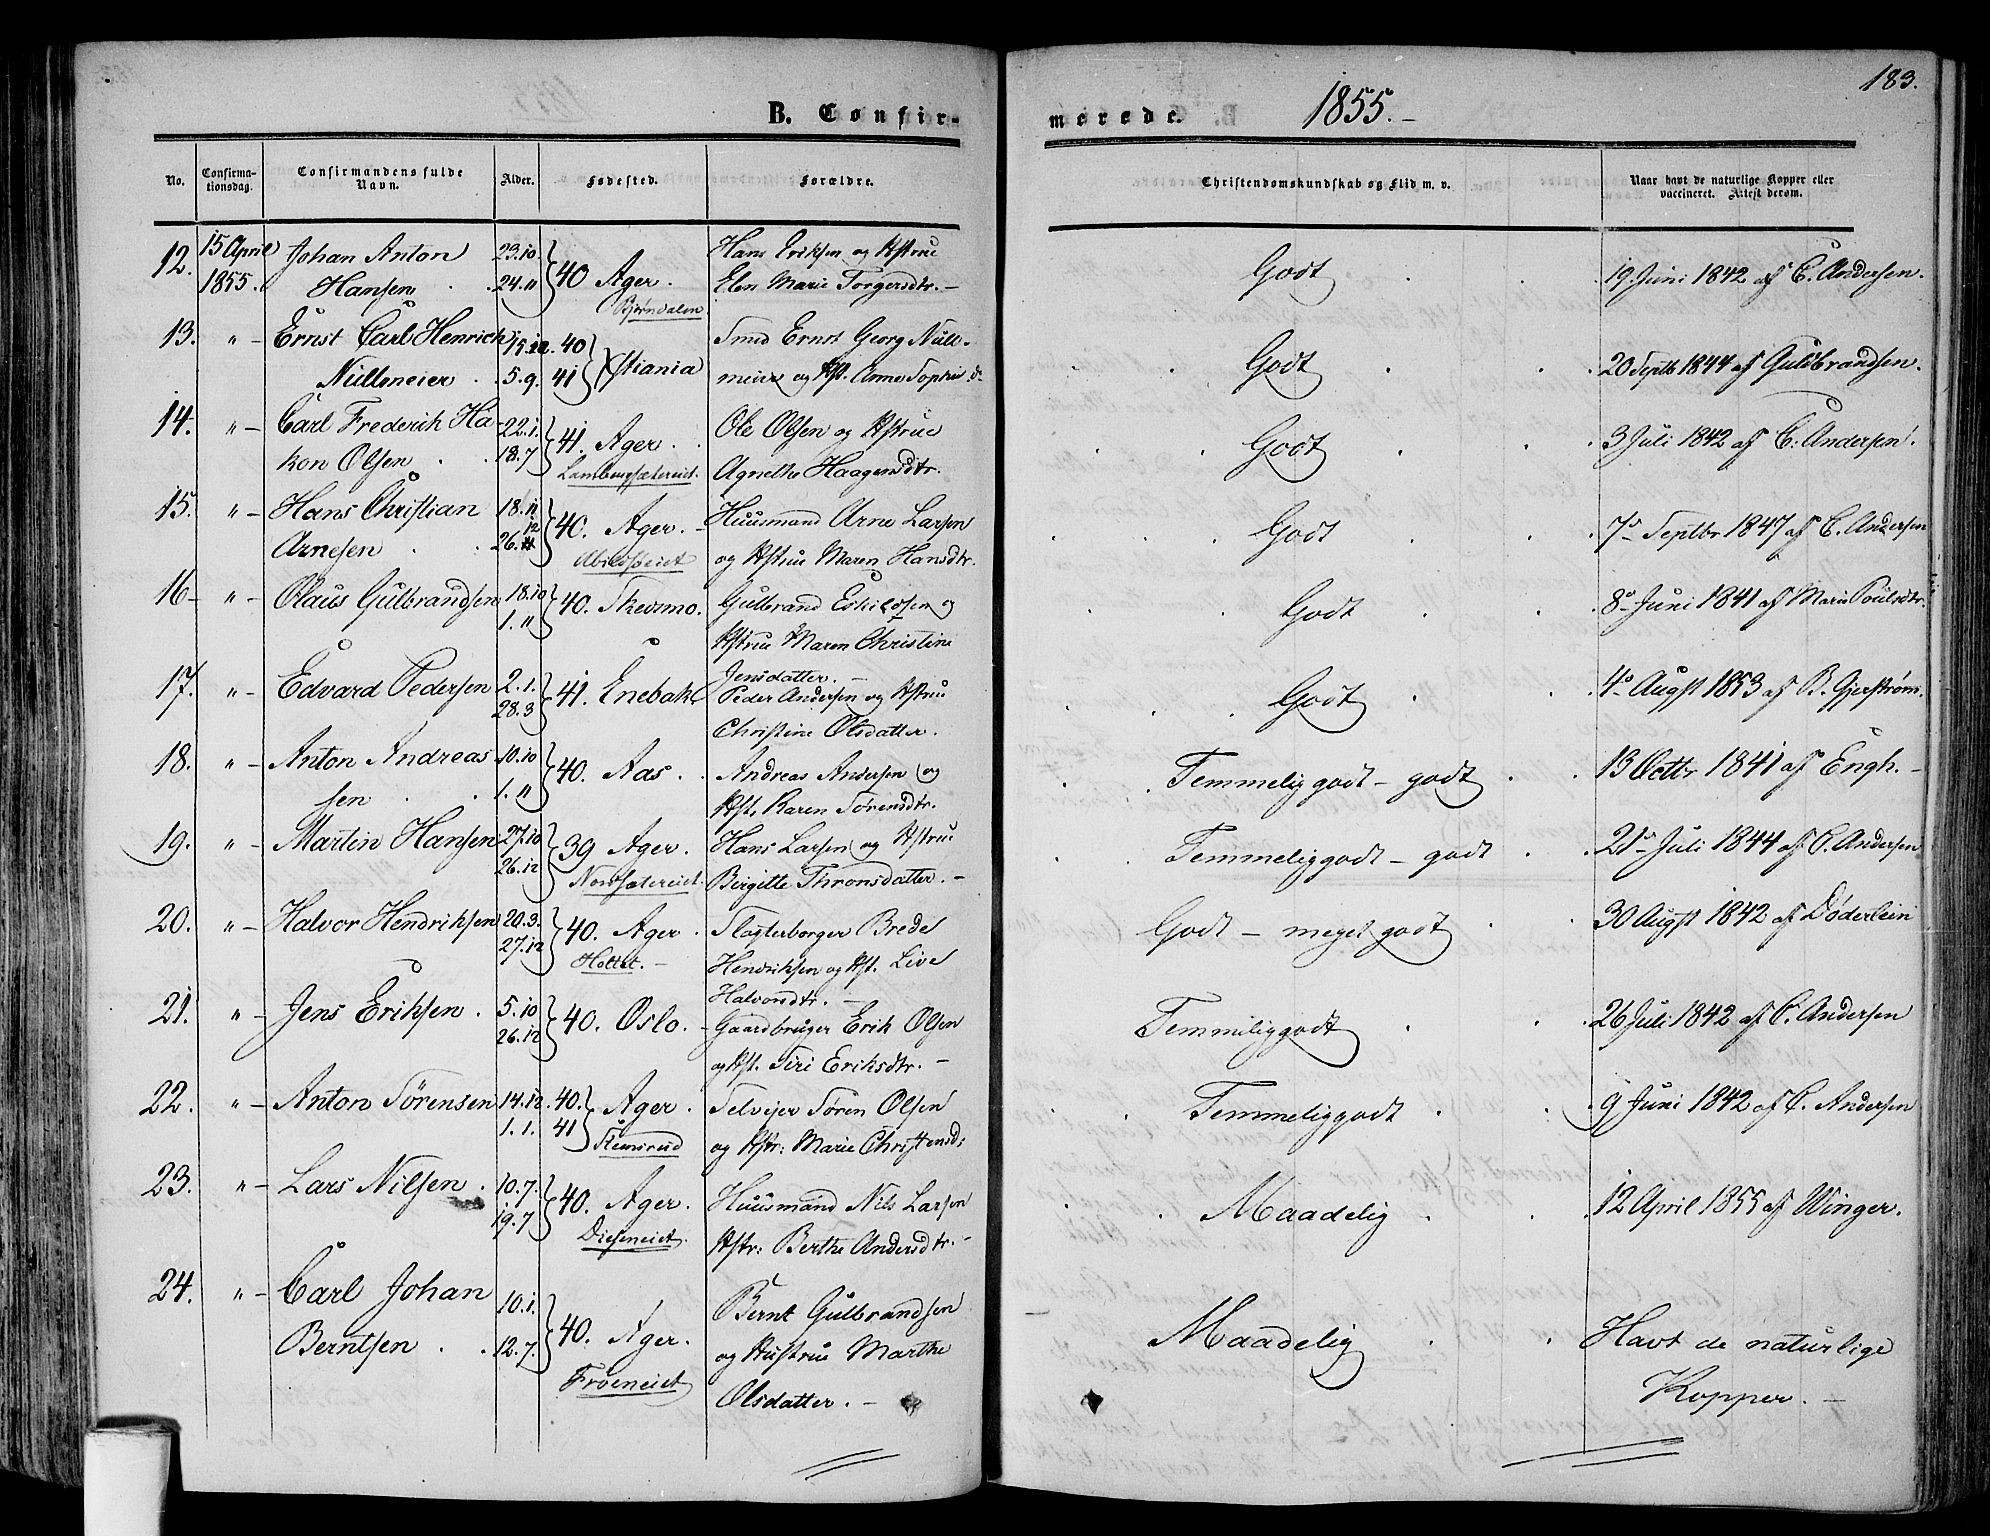 183.
B. Confir-
merede.
1855.-
No.
Confirma-
tionsdag.
Confirmandens fulde
Navn.
Alder.
Fødested.
Forældre.
Christendomskundskab og Flid m. v.
Naar havt de naturlige Kopper eller
vaccineret. Attest derom.
12. 15 April Johan Anton 23.10. 40 Ager. Hans Eriksen og Hstrue Godt 19. Juni 1842 af C. Andersen.
1855. Hansen 24.11 Bjørndalen Elen Marie Torgersdtr. -
13. " - Ernst Carl Henrich 15.12. 40 Xstiania Smed Ernst Georg Nülle- Godt 20 Septb 1844 af Guldbrandsen.
Nülleneier 5.9. 41 meier og Hst. Anne Sophie do
14. " - Carl Frederik Ha- 22.1. 41. Ager Ole Olsen og Hstrue Godt 3 Juli 1842 af C. Andersen.
kon Olsen 18.7 Lambertsætereiet. Agnethe Haagensdtr.
15. " - Hans Christian 18.11 40. Ager. - Huusmand Arne Larsen Godt 7de Septbr 1847 af C. Andersen
Arnesen 26.12 Abildsøeiet og Hstrue Maren Hansdtr.
16 - " - Olaus Gulbrandsen 18.10 40. Skedsmo. Gulbrand Eskildsen og Godt 8de Juni 1841 af Marie Poulsdtr.
1.11 Hstrue Maren Christine
Jensdatter. -
17. " - Edvard Pedersen 2.1. 41. Enebak Peder Andersen og Hstrue Godt 4de Augst 1853 af B. Gjerstrøm.
28.3 Christine Olsdatter.
18. " - Anton Andreas 10.10 40. Aas. Andreas Andersen og Temmelig godt - godt 13 Octbr 1841 af Engh. -
sen 1.11 Hst. Karen Sørensdtr.
19. " - Martin Hansen 27.10 39 Ager. Hans Larsen og Hstrue Temmeliggodt - godt 21de Juli 1844 af C. Andersen
26.12 Birgitte Thronsdatter. -
20. " - Halvor Hendriksen 20.3. 40. Ager Slagterborger Brede Godt - meget godt 30 Augst 1842 af Døderlein
27.12 Holtet. - Hendriksen og Hst. Live
Halvorsdtr. -
21. " - Jens Eriksen. 5.10 40. Oslo. - Gaardbruger Erik Olsen Temmeliggodt 26 Juli 1842 af C. Andersen
26.12 og Hst. Siri Eriksdtr. -
22. " - Anton Sörensen 14.12. 40. Ager. Selveier Sören Olsen Temmeliggodt 9 Juni 1842 af C. Andersen
1.1. 41 Stensrud og Hstr: Marie Christensd:
23. " - Lars Nilsen. 10.7. 40. Ager. Huusmand Nils Larsen Maadelig 12 April 1855 af Winger.
19.7 Dieseneiet. Hstr: Berthe Andersdtr. -
24. " - Carl Johan 10.1. 40. Ager. Bernt Gulbrandsen Maadelig Havt de naturlige
Berntsen 12.7. Frøeneiet og Hustrue Marthe Kopper. -
Olsdatter. -